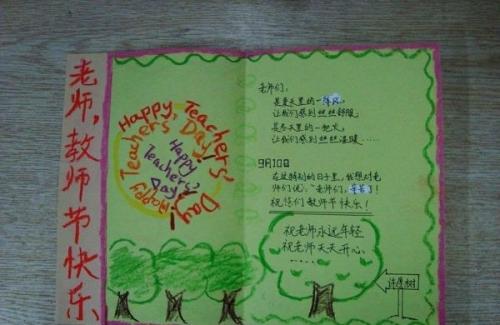 老师,教师节快乐
Happy Teachers' Day!
Happy Teachers' Day!
Happy
Teachers'
Day!
老师们:
是夏天里的一阵风,
让我们感到丝丝舒服,
是冬天里的一把火,
让我们感到丝丝温暖……
9月10日
在这特别的日子里,我想对老
师们说:“老师们,辛苦了!
祝你们教师节快乐!
祝老师永远年轻
祝老师天天开心、
……
许愿树